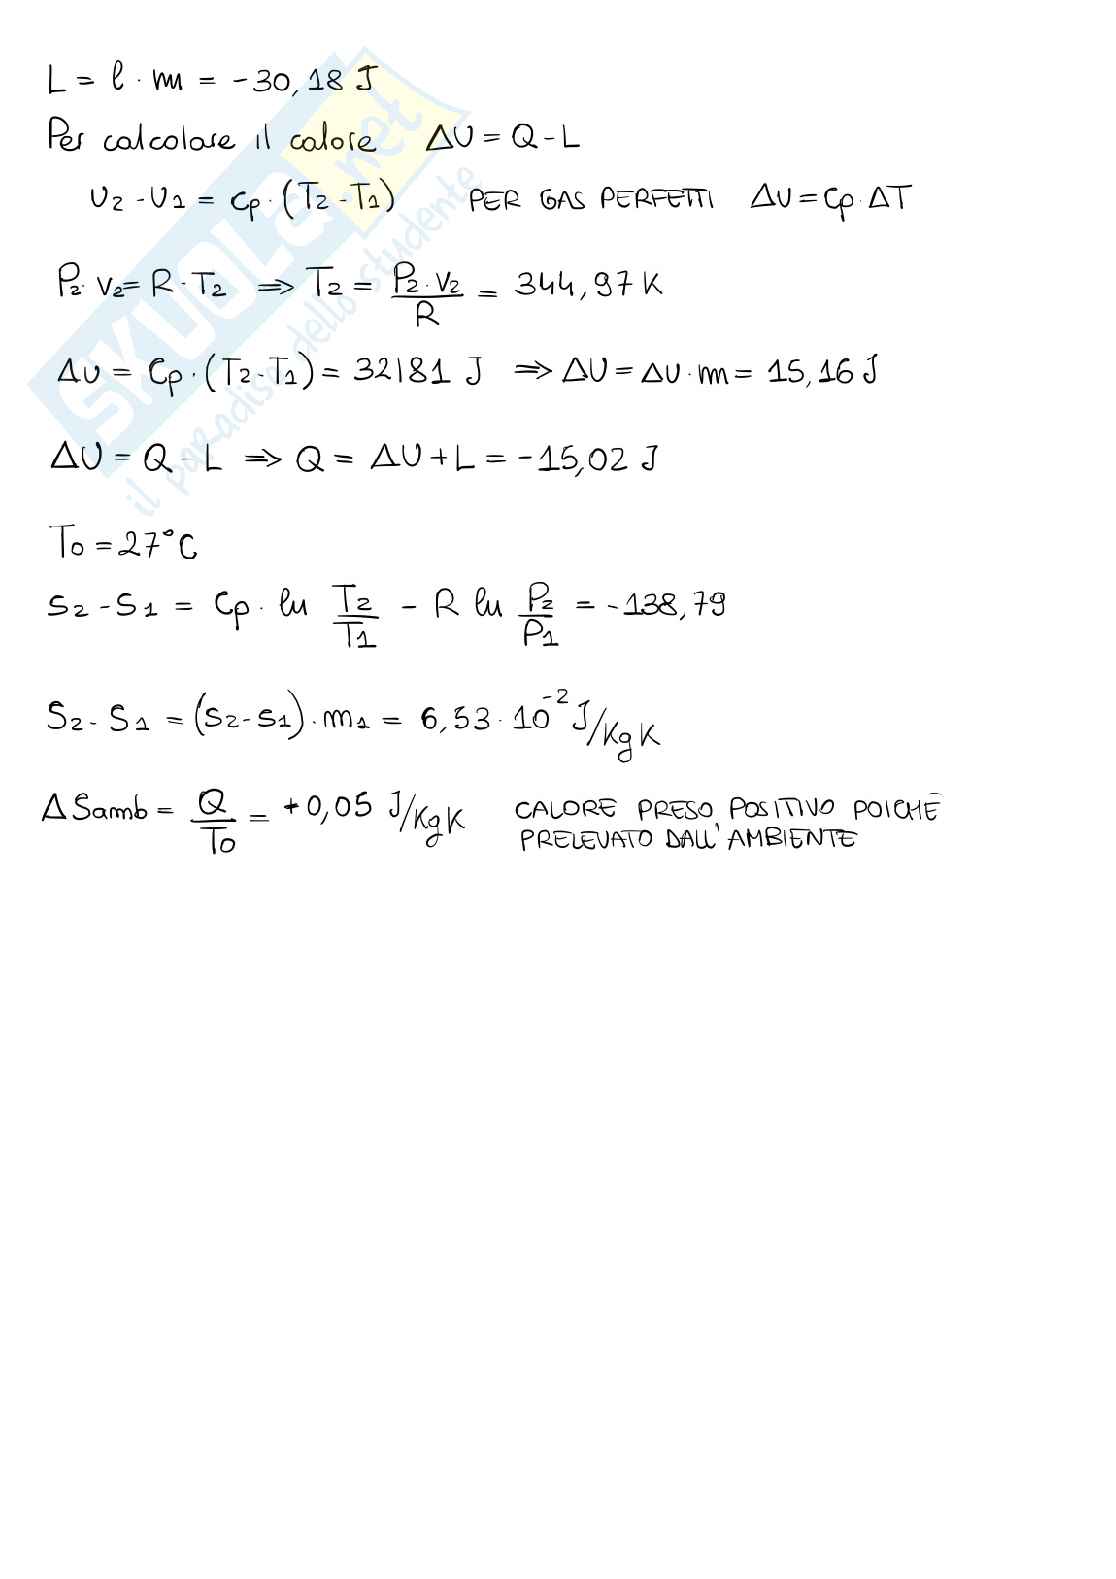 L = l · m = -30,18 J
Per calcolare il calore ΔU = Q - L
U2 - U1 = Cp · (T2 - T1) PER GAS PERFETTI ΔU = Cp · ΔT
P2 · V2 = R · T2 ⇒ T2 = P2 · V2 / R = 344,97 K
Δu = Cp · (T2 - T1) = 32181 J ⇒ ΔU = Δu · m = 15,16 J
ΔU = Q - L ⇒ Q = ΔU + L = -15,02 J
T0 = 27°C
S2 - S1 = Cp · ln T2/T1 - R ln P2/P1 = -138,79
S2 - S1 = (s2 - s1) · m1 = 6,53 · 10^-2 J/Kg K
ΔSamb = Q/T0 = +0,05 J/Kg K CALORE PRESO POSITIVO POICHÉ
PRELEVATO DALL'AMBIENTE
SKUOLA.net
il paradiso dello studente